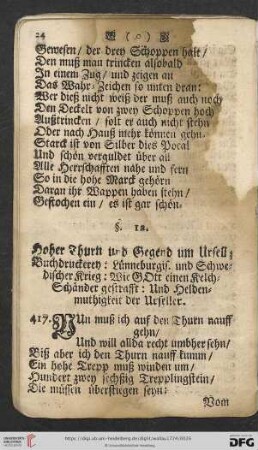 24
Gewesen / der drey Schoppen hält /
Den muß man trincken alsobald
In einem Zug / und zeigen an
Das Wahr-Zeichen so unten dran:
Wer dieß nicht weiß der muß auch noch
Den Deckel von zwey Schoppen hoch
Außtrincken / solt er auch nicht stehn
Oder nach Hauß mehr können gehn.
Starck ist von Silber dies Pocal
Und schön verguldet über all
Alle Herrschafften nähe und fern
So in die hohe Marck gehörn
Daran ihr Wappen haben stehn /
Gestochen ein / es ist gar schön.
§. 18.
Hoher Thurn und Gegend um Ursell:
Buchdruckerey: Lünneburgis. und Schwe-
discher Krieg: Wie GOtt einen Kelch-
Schänder gestrafft: Und Helden-
muthigkeit der Urseller.
417. NUn muß ich auf den Thurn nauff
gehn /
Und will allda recht umbher sehn /
Biß aber ich den Thurn nauff kumm /
Ein hohe Trepp muß winden um /
Hundert zwey sechßig Trepplingstein /
Die müssen überstiegen seyn:
Vom